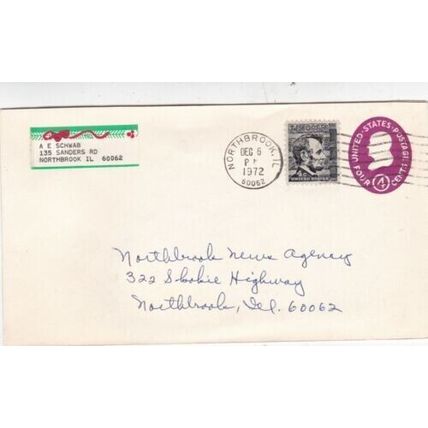 A E SCHWAB
135 SANDERS RD
NORTHBROOK IL 60062
NORTHBROOK, IL
DEC 6
PM
1972
60062
4c
UNITED STATES POSTAGE
FOUR 4 CENTS
Northbrook News Agency
322 Skokie Highway
Northbrook, Ill. 60062